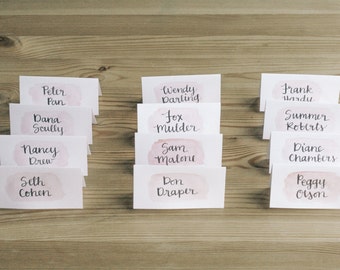 Peter
Pan
Dana
Scully
Nancy
Drew
Seth
Cohen
Wendy
Darling
Fox
Mulder
Sam
Malone
Don
Draper
Frank
Hardy
Summer
Roberts
Diane
Chambers
Peggy
Olson